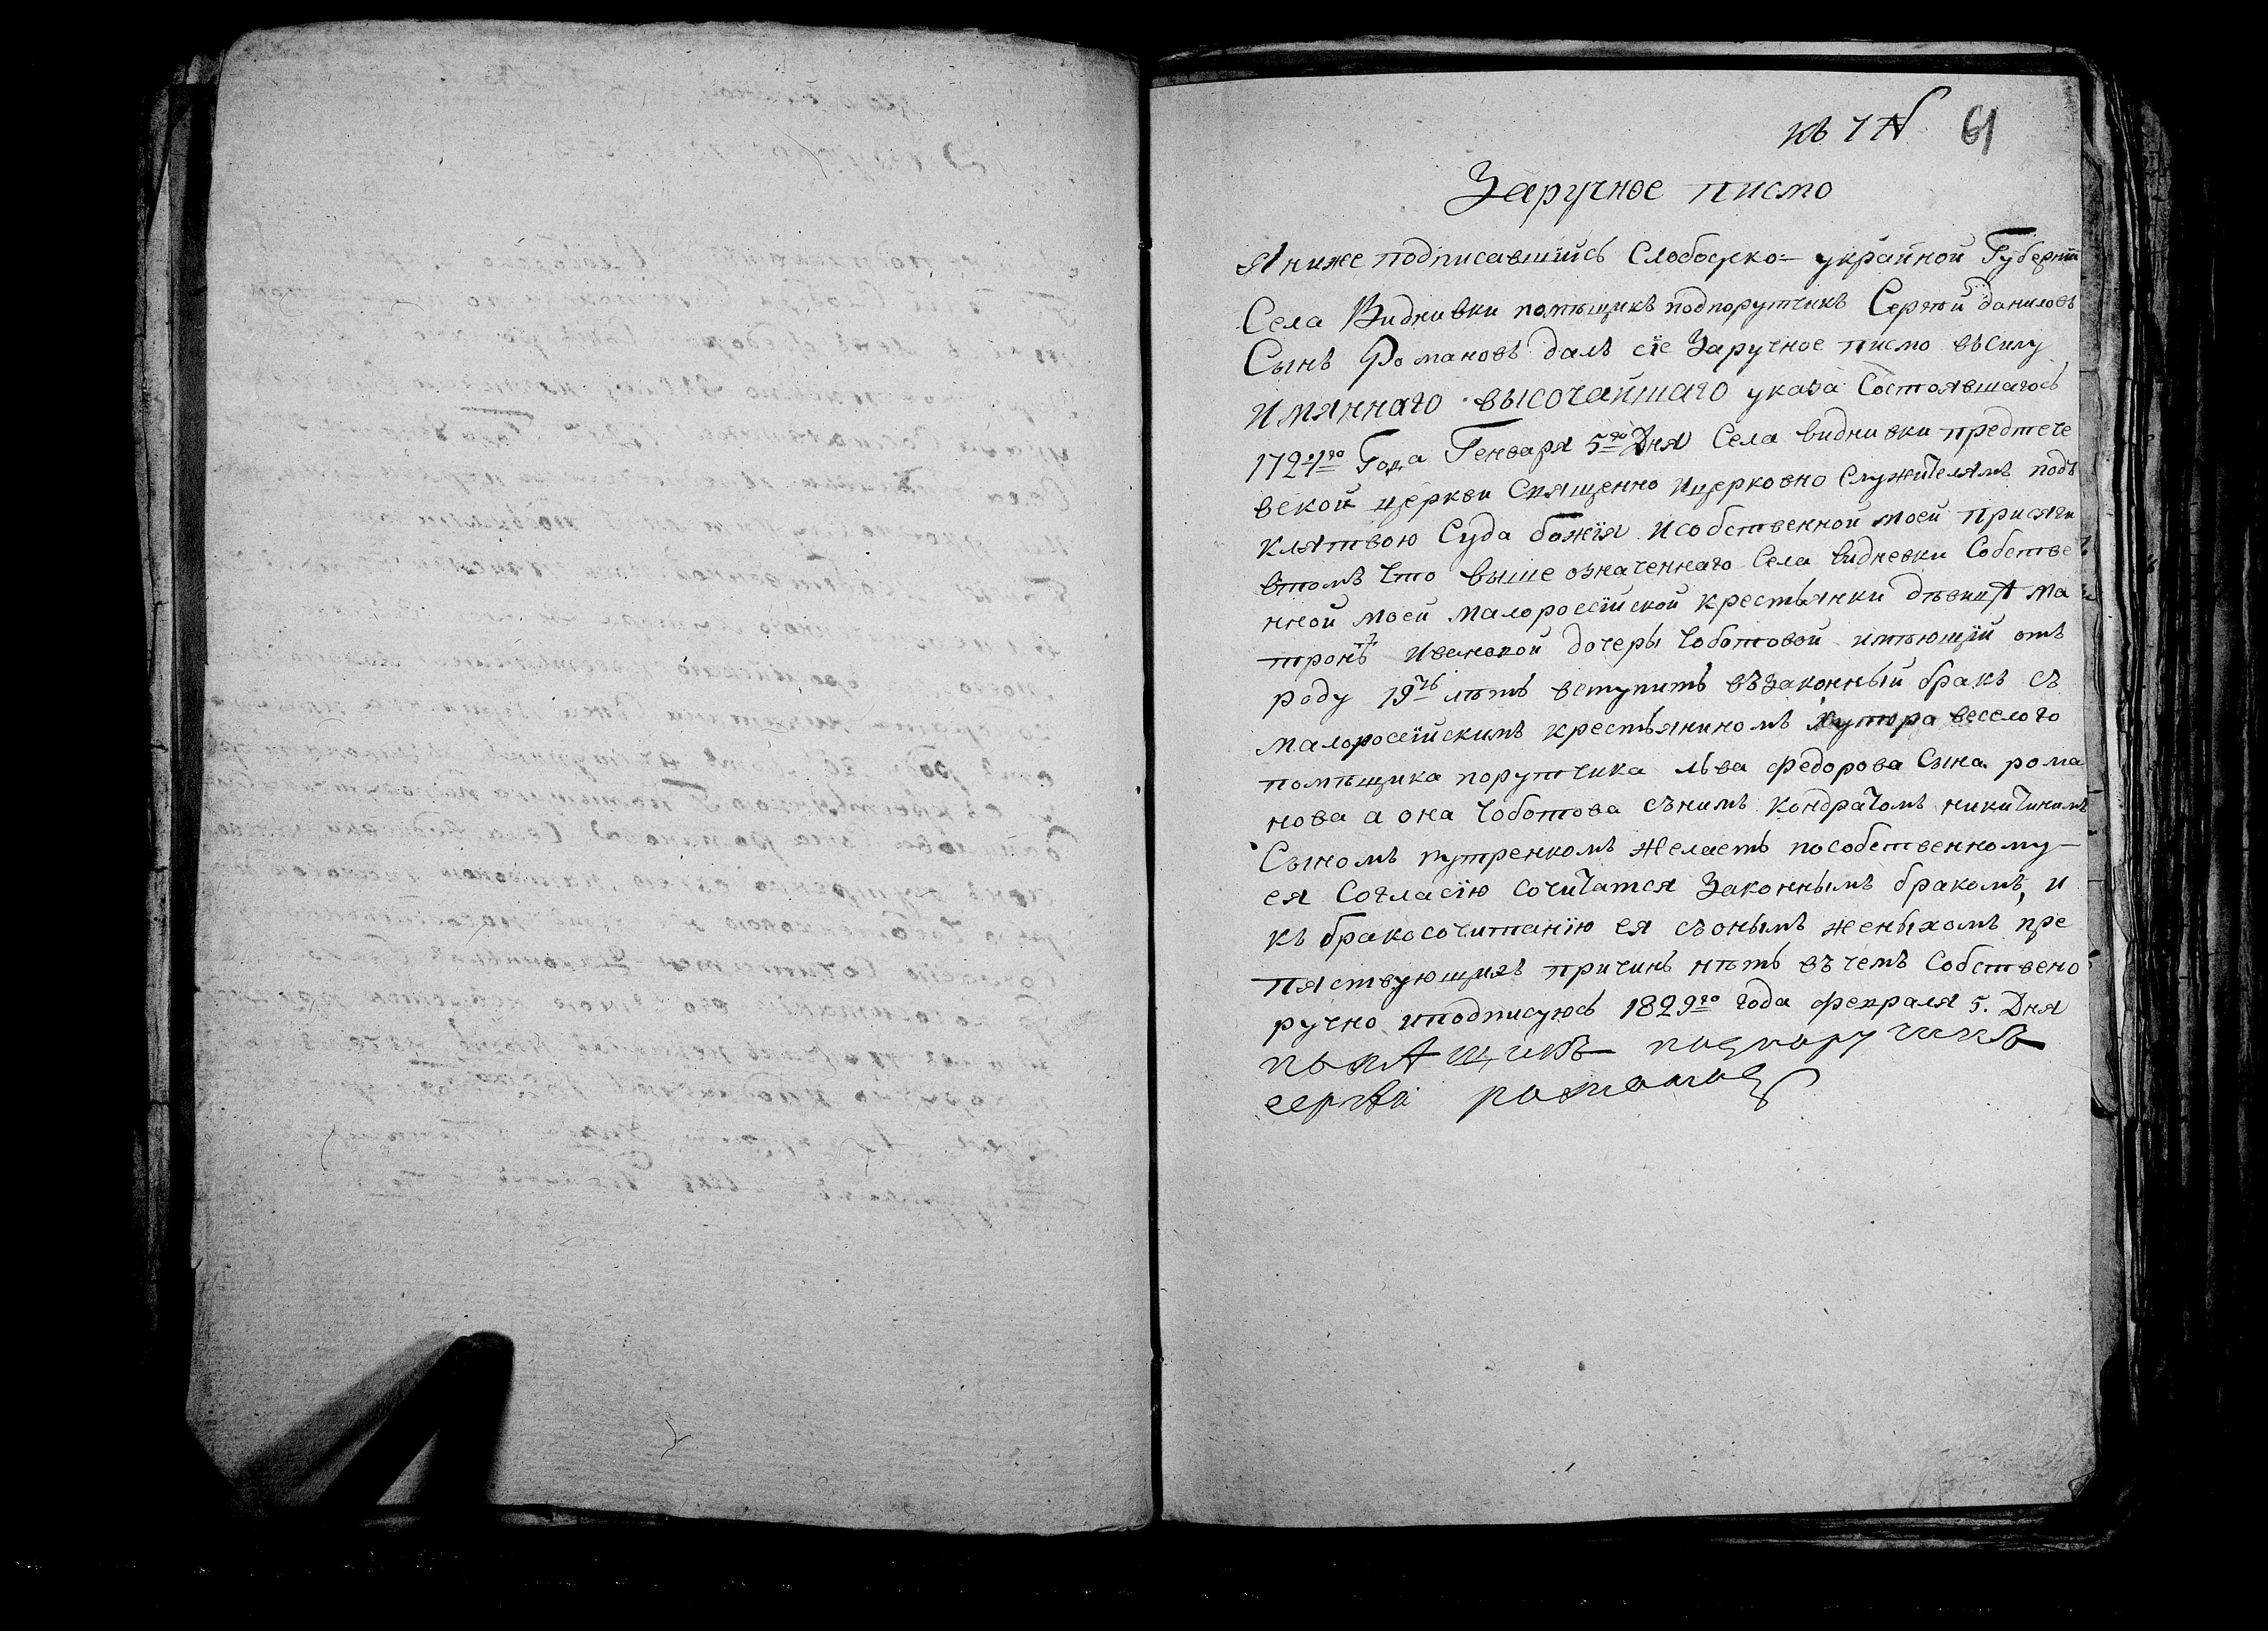 къ 7 N 61
Заручное писмо
Я ниже подписавшийсь Слободско-украйной Губерніи
Села Виднивки помѣщикъ подпорутчикъ Сергѣй даниловъ
Сынъ Романовъ далъ сіе Заручное писмо въсилу
имяннаго высочайшаго указа Состоявшагось
1724го Года Генваря 5го Дня Села виднивки предтече
вской церкви Священно ицерковно Служителямъ подъ
клятвою Суда божія исобственной моей присяги
втомъ что выше означеннаго Села видневки Собстве
нной моей малоросейской крестьянки дѣвки Ма
тронѣ Ивановой дочеры Чоботовой имѣющій отъ
роду 19ть лѣтъ вступить въ законный бракъ съ
малоросейскимъ крестьяниномъ хутора веселого
помѣщика порутчика льва федорова Сына рома
нова а она Чоботова снимъ кондратомъ никитинимъ
Сыномъ путренкомъ желаетъ пособственному
ея Согласію сочитатся Законнымъ бракомъ, и
къ бракосочитанію ея съонымъ женыхомъ пре
пяствующихъ причинъ нѣтъ въ чемъ Собствено
ручно иподписуюсь 1829го года февраля 5. Дня
помѣщикъ подпоручикъ
сергѣй романовъ